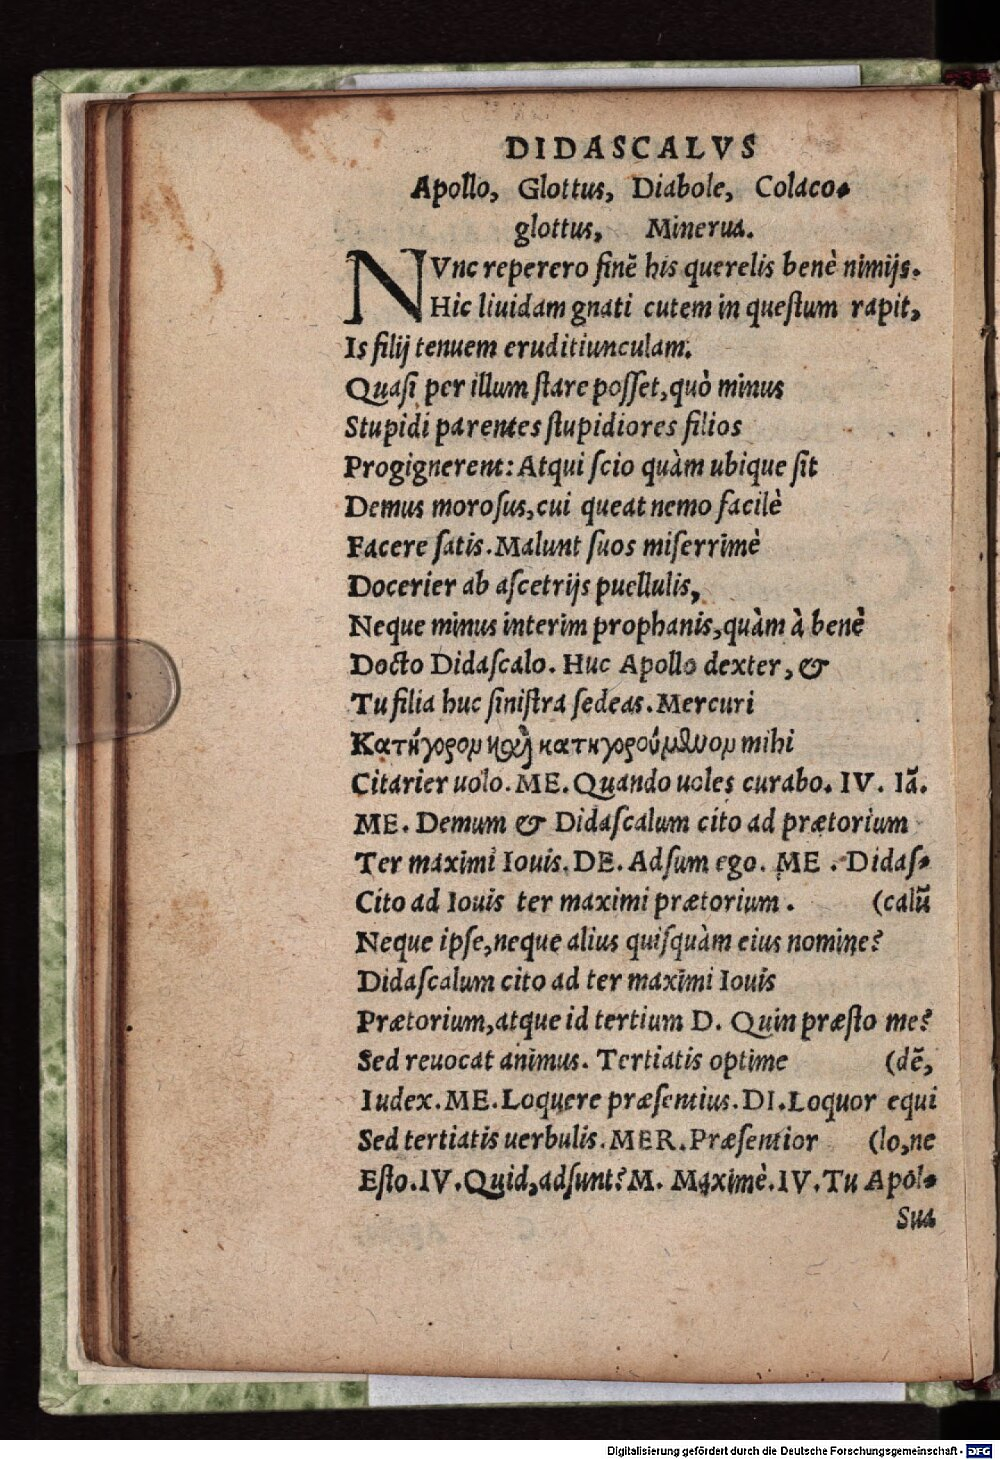 DIDASCALVS
Apollo, Glottus, Diabole, Colaco-
glottus, Minerua.
NVnc reperero finē his querelis benè nimijs.
Hic liuidam gnati cutem in questum rapit,
Is filij tenuem eruditiunculam.
Quasi per illum stare posset, quò minus
Stupidi parentes stupidiores filios
Progignerent: Atqui scio quàm ubique sit
Demus morosus, cui queat nemo facilè
Facere satis. Malunt suos miserrimè
Docerier ab ascetrijs puellulis,
Neque minus interim prophanis, quàm à benè
Docto Didascalo. Huc Apollo dexter, &
Tu filia huc sinistra sedeas. Mercuri
Κατήγορον καὶ κατηγορούμενον mihi
Citarier uolo. ME. Quando uoles curabo. IV. Iā.
ME. Demum & Didascalum cito ad prætorium
Ter maximi Iouis. DE. Adsum ego. ME. Didas-
Cito ad Iouis ter maximi prætorium. (calū
Neque ipse, neque alius quisquàm eius nomine?
Didascalum cito ad ter maximi Iouis
Prætorium, atque id tertium D. Quin præsto me?
Sed reuocat animus. Tertiatis optime (dē,
Iudex. ME. Loquere præsentius. DI. Loquor equi
Sed tertiatis uerbulis. MER. Præsentior (lo, ne
Esto. IV. Quid, adsunt? M. Maximè. IV. Tu Apol-
Sua
Digitalisierung gefördert durch die Deutsche Forschungsgemeinschaft - DFG